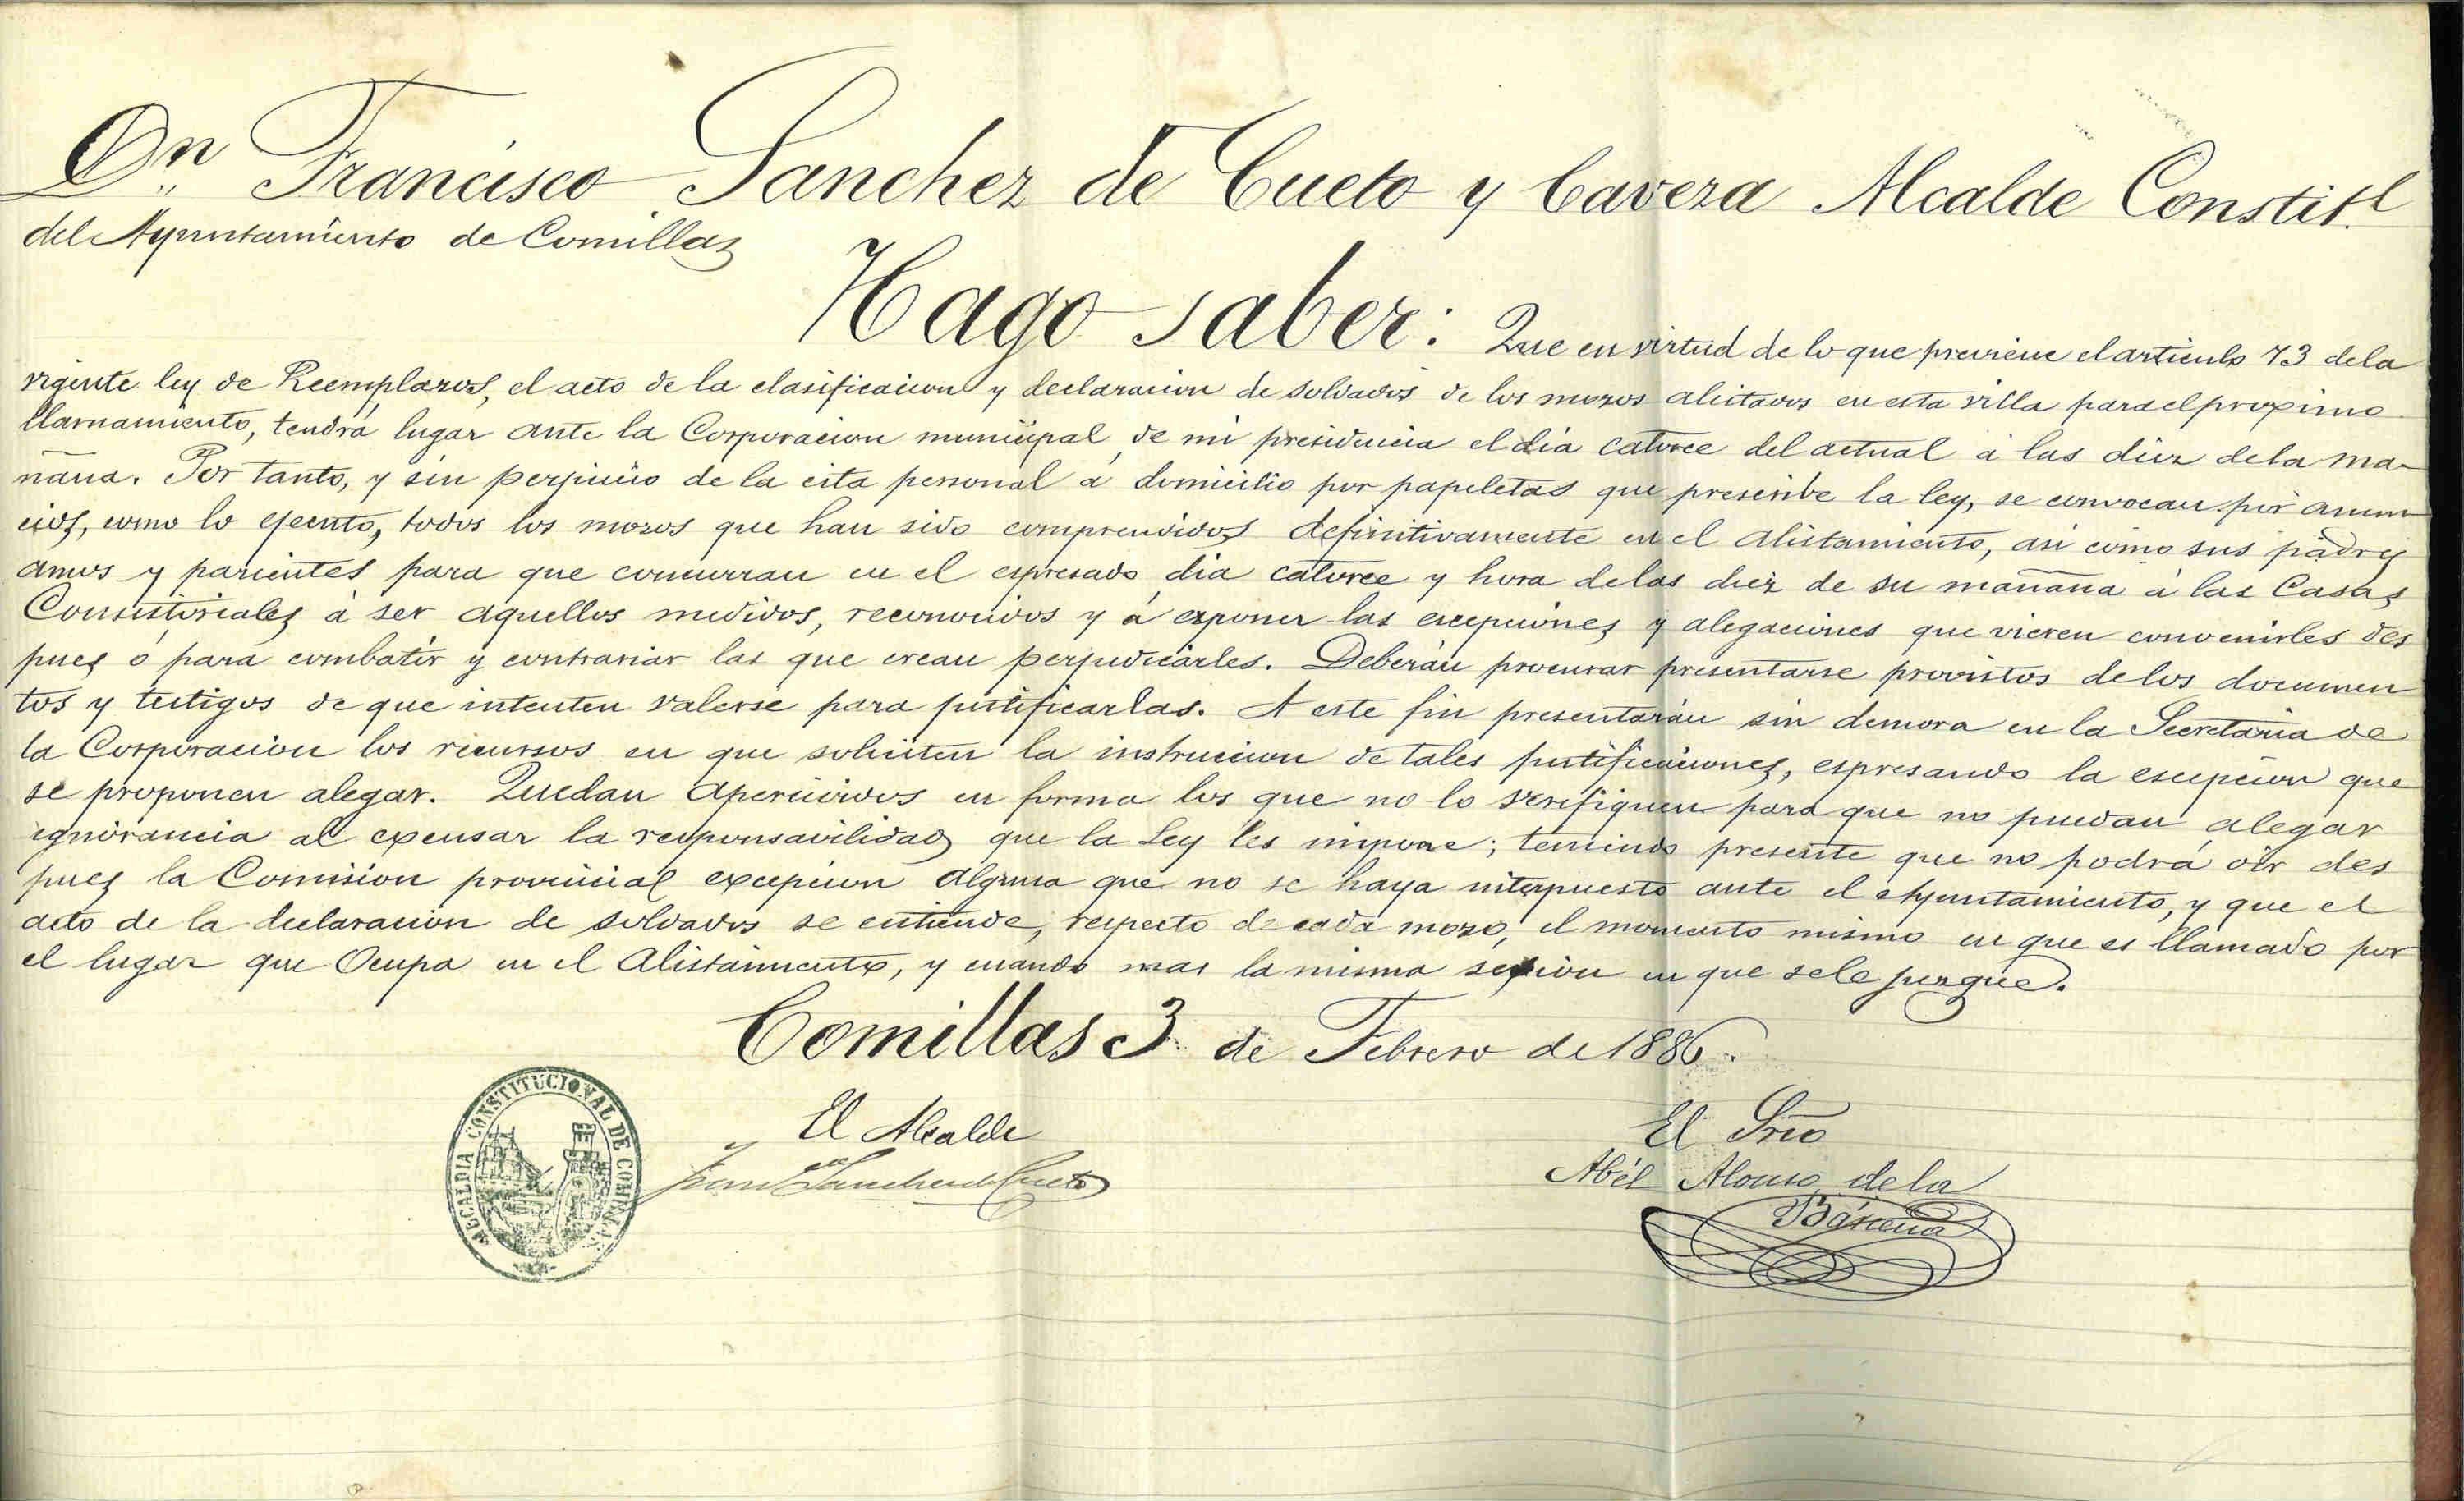 Dn Francisco Sanchez de Cueto y Cavera Alcalde Constitl.
del Ayuntamiento de Comillas
Hago saber: Que en virtud de lo que previene el articulo 73 de la
vigente ley de Reemplazos, el acto de la clasificacion y declaracion de soldados de los mozos alistados en esta villa para el proximo
llamamiento, tendrá lugar ante la Corporacion municipal de mi presidencia el dia catorce del actual á las diez de la ma-
ñana. Por tanto, y sin perjuicio de la cita personal á domicilio por papeletas que prescribe la ley, se convocan por anun
cios, como lo ejecuto, todos los mozos que han sido comprendidos definitivamente en el alistamiento, asi como sus padres
amos y parientes para que concurran en el espresado dia catorce y hora de las diez de su mañana á las Casas
Consistoriales á ser aquellos medidos, reconocidos y á exponer las escepciones y alegaciones que vieren convenirles des
pues ó para combatir y contrariar las que crean perjudicarles. Deberán procurar presentarse provistos de los documen
tos y testigos de que intenten valerse para justificarlas. A este fin presentarán sin demora en la Secretaria de
la Corporacion los recursos en que soliciten la instruccion de tales justificaciones, espresando la escepcion que
se proponen alegar. Quedan apercividos en forma los que no lo verifiquen para que no puedan alegar
ignorancia al expensar la responsavilidad que la Ley les impone; teniendo presente que no podrá oir des
pues la Comision provincial excepcion alguna que no se haya interpuesto ante el Ayuntamiento, y que el
acto de la declaracion de soldados se entiende, respecto de cada mozo, el momento mismo en que es llamado por
el lugar que Ocupa en el Alistamiento, y cuando mas la misma sesion en que se le juzgue.
Comillas 3 de Febrero de 1886.
ALCALDIA CONSTITUCIONAL DE COMILLAS
El Alcalde
Franco Sanchez de Cueto
El Srio
Abél Alonso de la
Bárcena